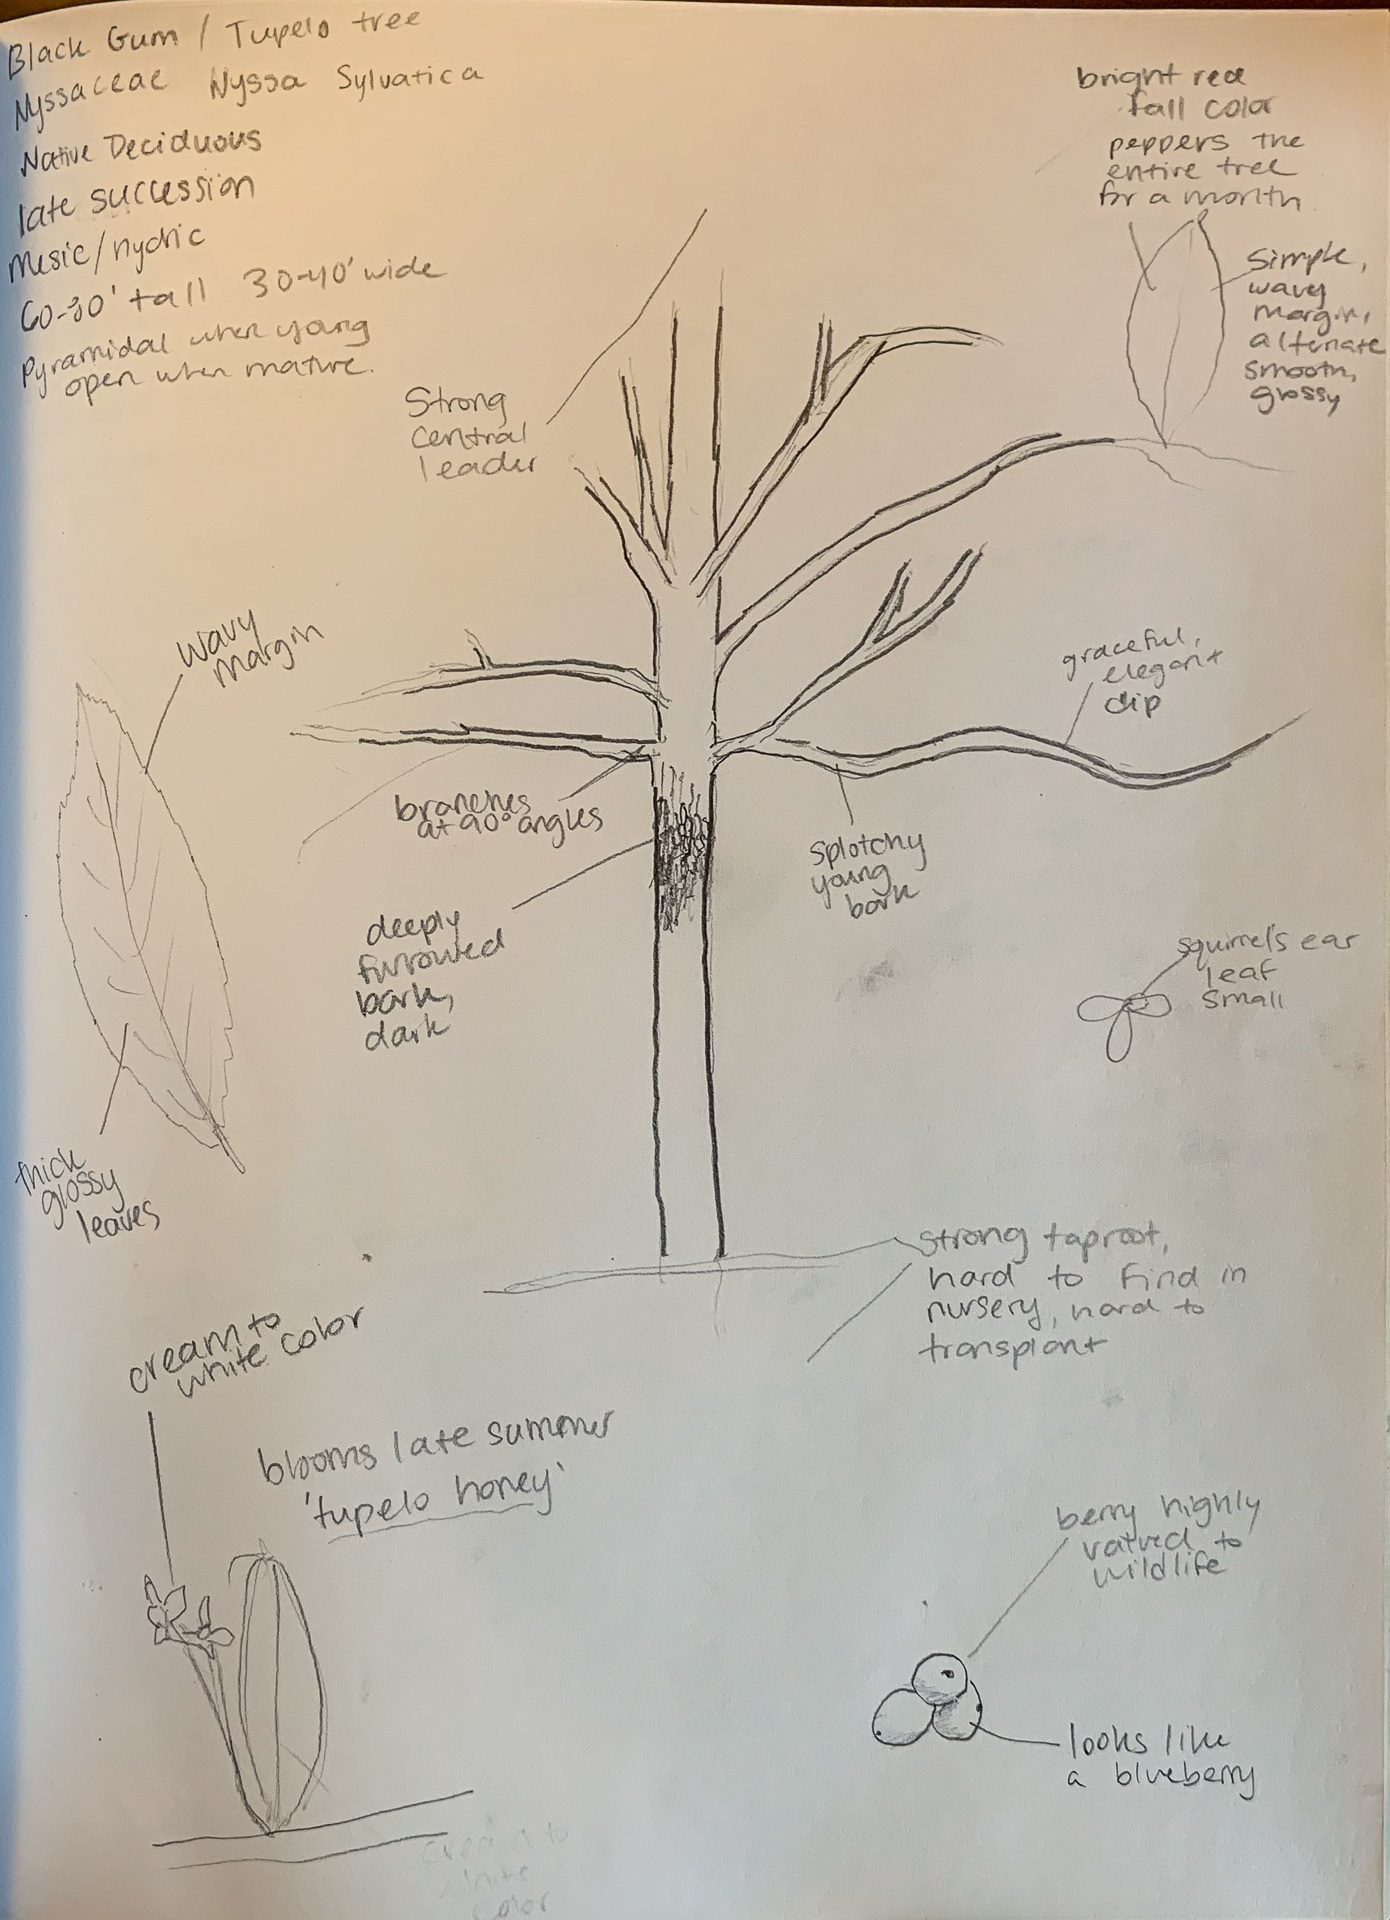 Black Gum / Tupelo tree
Nyssaceae Nyssa Sylvatica
Native Deciduous
late succession
Mesic/hydric
60-80' tall 30-40' wide
Pyramidal when young
open when mature.
bright red
fall color
peppers the
entire tree
for a month
Simple,
wavy
margin,
alternate
smooth,
glossy
Strong
central
leader
wavy
margin
graceful,
elegant
dip
branches
at 90° angles
splotchy
young
bark
deeply
furrowed
bark,
dark
squirrel's ear
leaf
small
thick
glossy
leaves
strong taproot,
hard to find in
nursery, hard to
transplant
cream to
white color
blooms late summer
'tupelo honey'
berry highly
valued to
wildlife
looks like
a blueberry
cream to
white
color